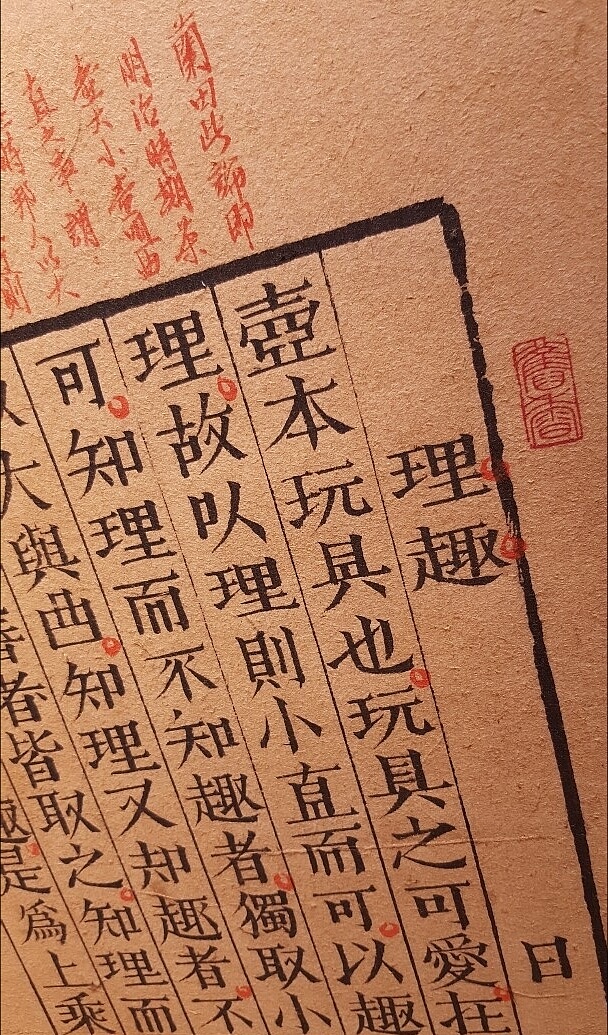 蘭田此論即
明治時期茶
壺大小
直之
時邦人以大
曰
理趣
壺本玩具也玩具之可愛在
理故以理則小直而可以趣
可知理而不知趣者獨取小
大與曲知理又知趣者不
者皆取之知理而
是爲上乘